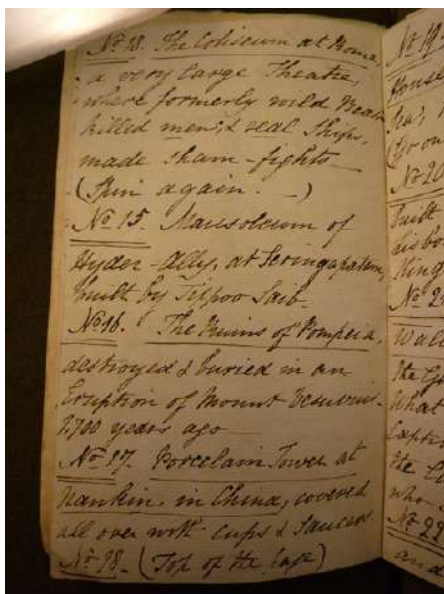 No 18. The Coliseum at Rome
a very large Theatre,
where formerly wild Beasts
killed men, & real Ships,
made sham-fights
(Spin again. —)
No 15. Mausoleum of
Hyder-Ally, at Seringapatam,
built by Tippoo Saib.
No 16. The Ruins of Pompeia,
destroyed & buried in an
Eruption of Mount Vesuvius
1700 years ago
No 17. Porcelain Tower at
Nankin, in China, covered
all over with cups & Saucers.
No 18. (Top of the page)
No 19.
House
(Go on
No 20
built
Kings
No 2
Wall
the
What
Capti
the
who
No 22
and